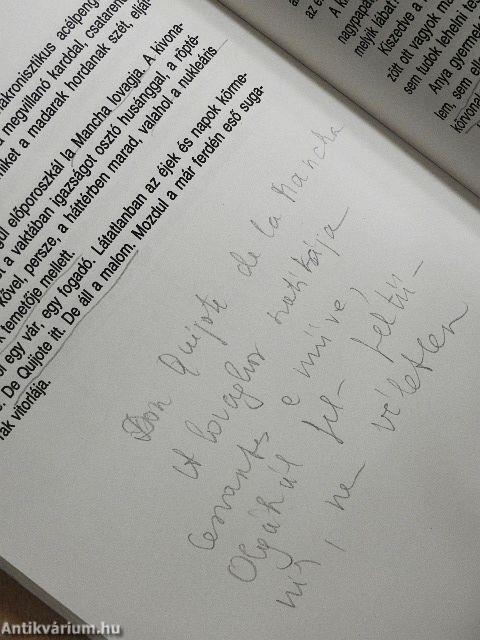 akronisztikus acélpeng
megvillanó karddal, csatarend
miket a madarak hordanak szét, eljár
gül előporoszkál la Mancha lovagja. A kivona-
a vaktában igazságot osztó husánggal, a röpté-
kővel, persze, a háttérben marad, valahol a nukleáris
temetője mellett.
ol egy vár, egy fogadó. Látatlanban az éjek és napok körme-
De Quijote itt. De áll a malom. Mozdul a már ferdén eső suga-
rak vitorlája.
Don Quijote de la Mancha
A lovagkor
Cervantes e műve,
Olgánál fel- feltű-
nik, ne véletlen
az é
A k
nagypapá
melyik lábat
Kiszedve a
zött ott vagyok m
sem tudok lehelni le
Anya gyermek
lem, sem elle
körvonal
Antikvárium.hu